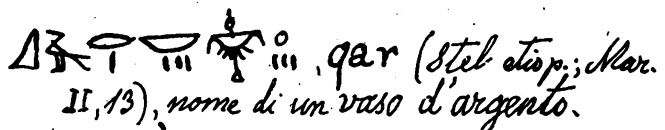 , qar (Stel etiop.; Mar.
II, 13), nome di un vaso d'argento.